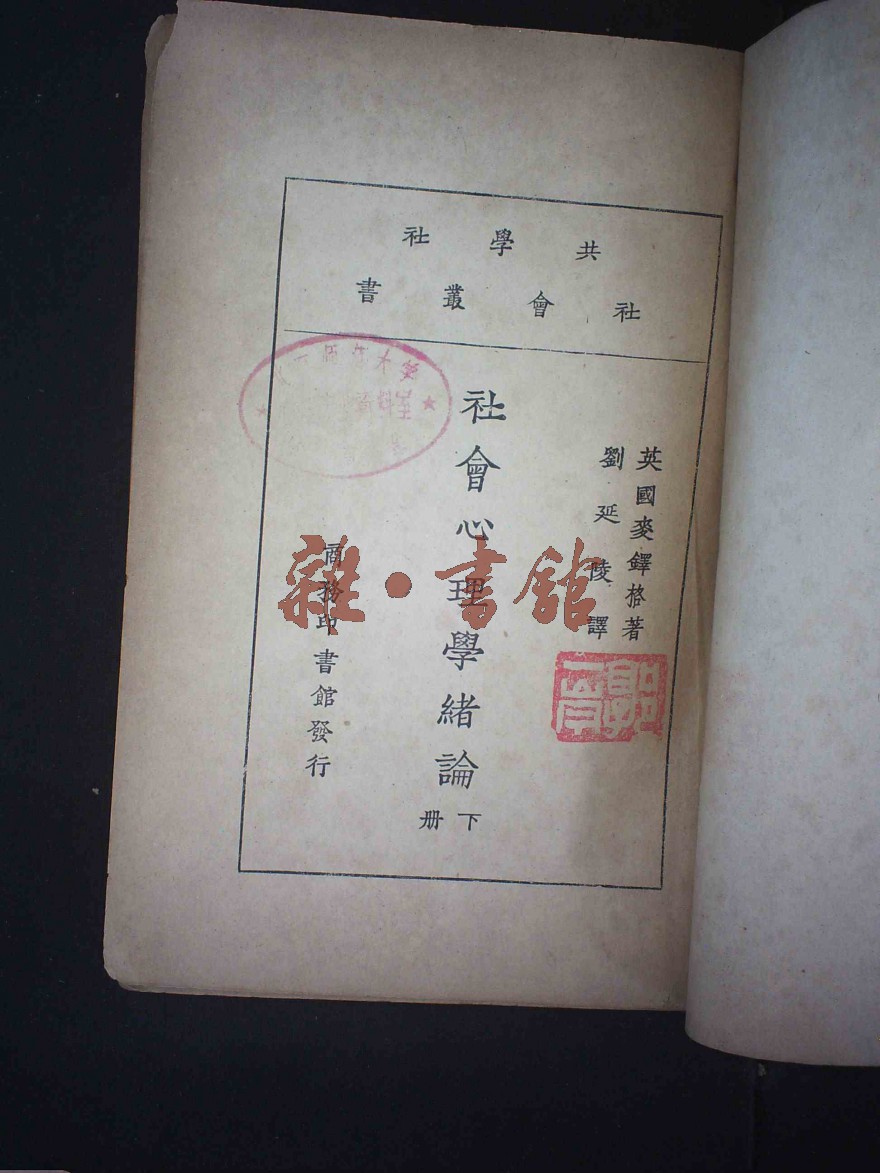 共學社
社會叢書
英國麥鐸格著
劉延陵譯
社會心理學緒論
下册
商務印書館發行
雜·書館